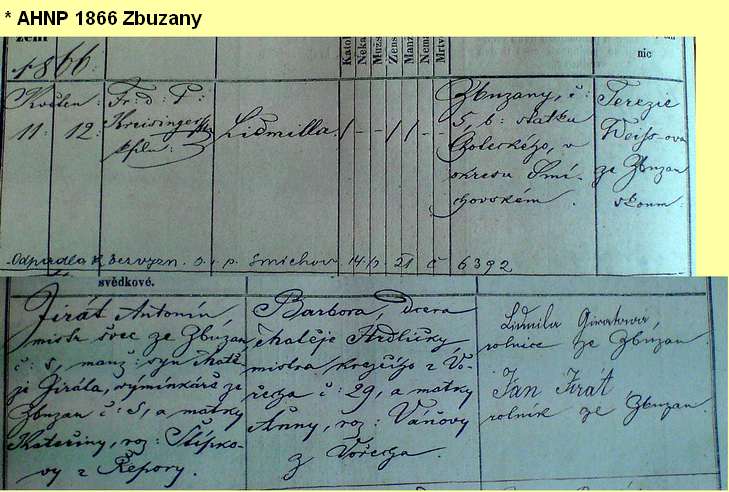 * AHNP 1866 Zbuzany
zení
Katol
Neka
Mužs
Žens
Manž
Nema
Mrtv
nic
1866.
Květen
11. 12.
Fr: d: P:
Kreisinger
kpln.
Lidmilla
/ - - / / - -
Zbuzany, č:
5, b: statku
Choteckého, v
okresu Smí-
chovském.
Terezie
Weiss-ova
ze Zbuzan
zkoum:
Odpadla k bezvyzn. o. v. p. Smíchov. 14/2. 21 č 6392
svědkové.
Jirát Antonín,
mistr švec ze Zbuzan
č: 5, manž: syn Matě
je Giráta, výminkáře ze
Zbuzan č: 5, a matky
Kateřiny, roz: Štípko-
vy z Řepory.
Barbora, dcera
Matěje Hrdličky,
mistra krejčího z Vo-
řecha č: 29, a matky
Anny, roz: Váňovy
z Vořecha.
Lidmila Giratowa,
rolnice ze Zbuzan.
Jan Jirát
rolník ze Zbuzan.